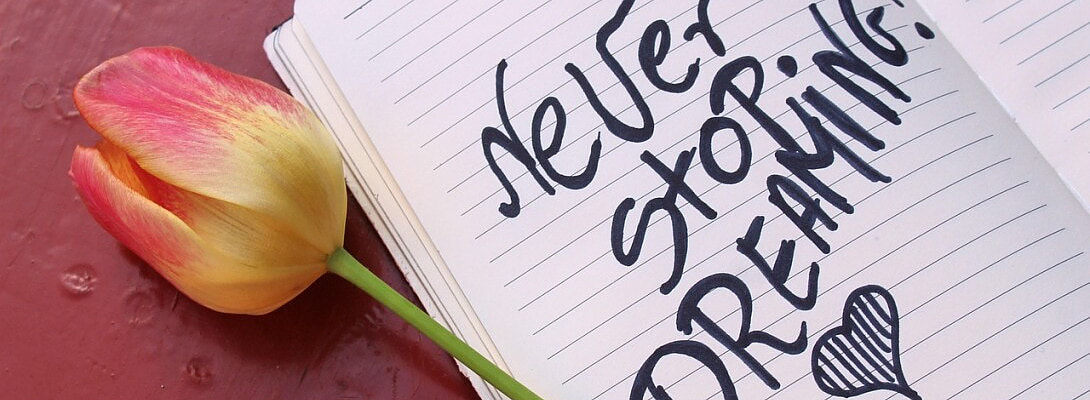 NeVer
STOP
DREAMiNG!